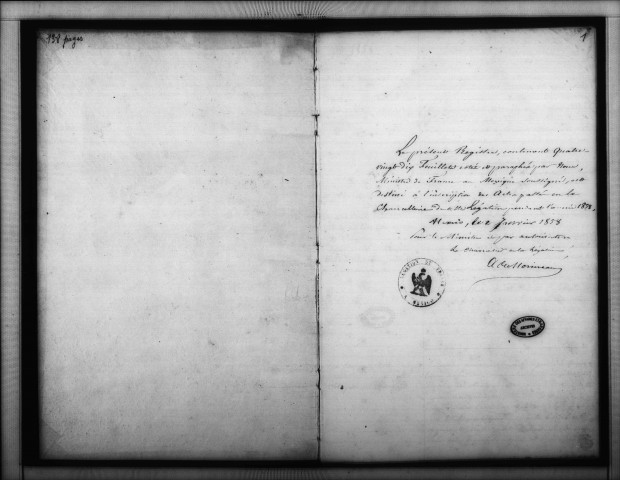 138 pages
1
Le présent Registre, contenant Quatre
vingt dix feuillets coté et paraphé par Nous,
Ministre de France au Mexique soussigné, est
destiné à l'inscription des Actes passés en la
Chancellerie de cette Légation pendant l'année 1858.
Mexico, le 2 Janvier 1858
Pour le Ministre et par autorisation
Le Chancelier de la Légation
LÉGATION DE FRANCE